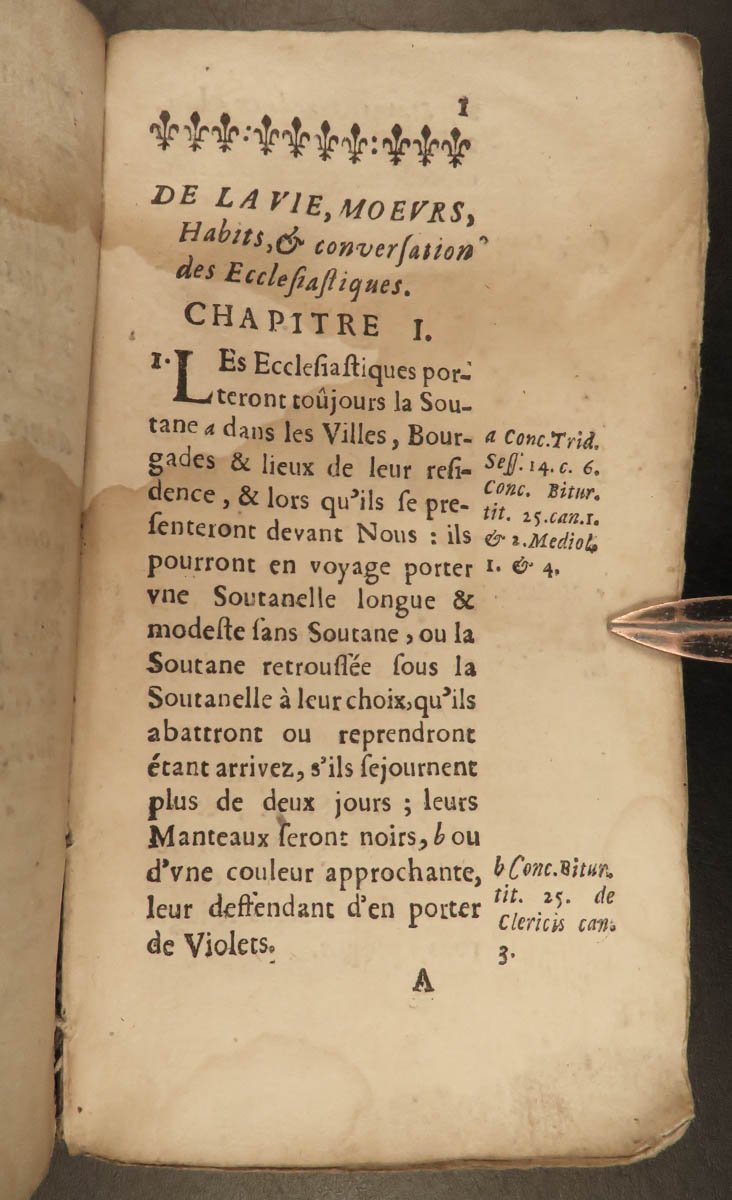 1
DE LA VIE, MOEVRS,
Habits, & conversation
des Ecclesiastiques.
CHAPITRE I.
1. LEs Ecclesiastiques por-
teront toûjours la Sou-
tane a dans les Villes, Bour-
gades & lieux de leur resi-
dence, & lors qu'ils se pre-
senteront devant Nous : ils
pourront en voyage porter
vne Soutanelle longue &
modeste sans Soutane, ou la
Soutane retroussée sous la
Soutanelle à leur choix, qu'ils
abattront ou reprendront
étant arrivez, s'ils sejournent
plus de deux jours ; leurs
Manteaux seront noirs, b ou
d'vne couleur approchante,
leur deffendant d'en porter
de Violets.
a Conc. Trid.
Sess. 14. c. 6.
Conc. Bitur.
tit. 25. can. 1.
& 2. Mediol.
1. & 4.
b Conc. Bitur.
tit. 25. de
Clericis can.
3.
A